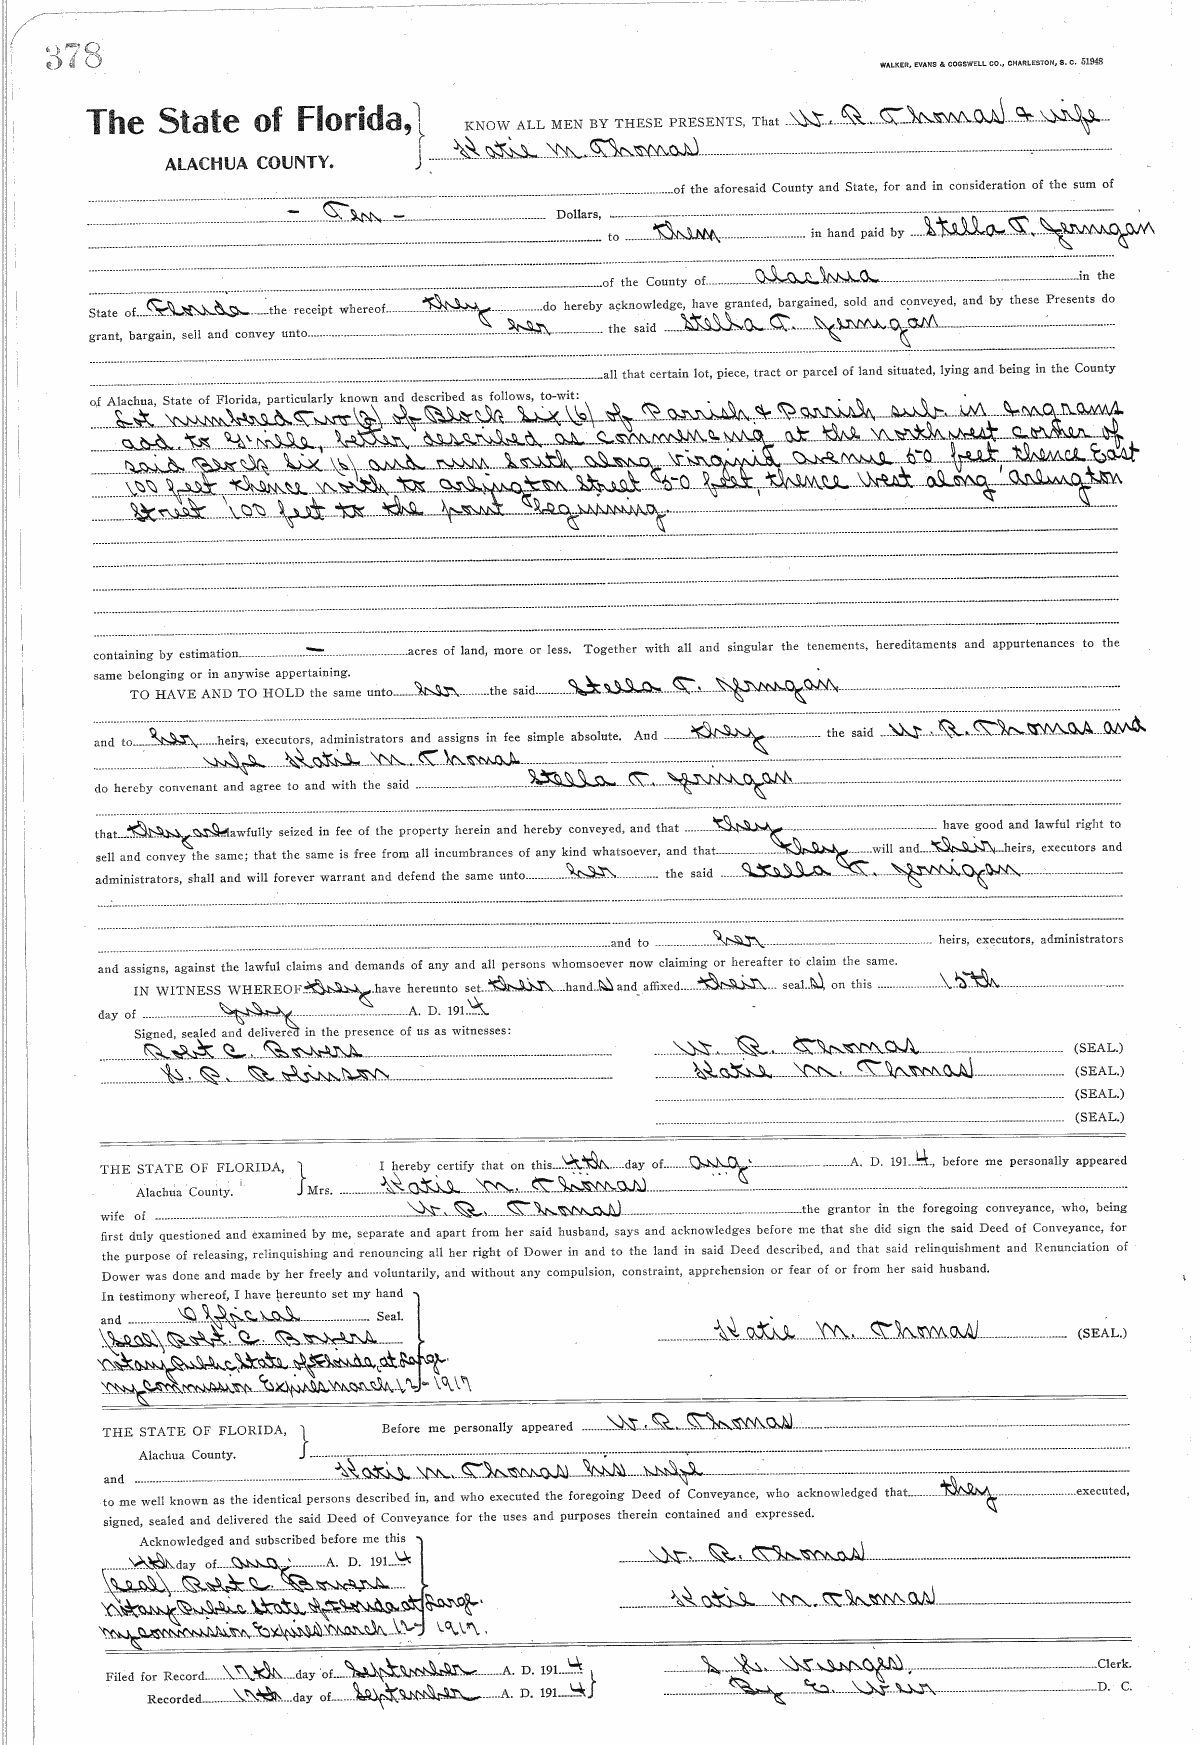 378
WALKER, EVANS & COGSWELL CO., CHARLESTON, S. C. 51948
The State of Florida,
ALACHUA COUNTY.
KNOW ALL MEN BY THESE PRESENTS, That W. R. Thomas & wife
Katie M. Thomas
of the aforesaid County and State, for and in consideration of the sum of
- Ten - Dollars,
to them in hand paid by Stella T. Jernigan
of the County of Alachua in the
State of Florida the receipt whereof they do hereby acknowledge, have granted, bargained, sold and conveyed, and by these Presents do
grant, bargain, sell and convey unto her the said Stella T. Jernigan
all that certain lot, piece, tract or parcel of land situated, lying and being in the County
of Alachua, State of Florida, particularly known and described as follows, to-wit:
Lot numbered Two (2) of Block Six (6) of Parrish & Parrish sub. in Engrams
add. to G'ville, better described as commencing at the northwest corner of
said Block Six (6) and run South along Virginia avenue 50 feet, thence East
100 feet, thence north to arlington Street 50 feet, thence West along arlington
Street 100 feet to the point beginning.
containing by estimation — acres of land, more or less. Together with all and singular the tenements, hereditaments and appurtenances to the
same belonging or in anywise appertaining.
TO HAVE AND TO HOLD the same unto her the said Stella T. Jernigan
and to her heirs, executors, administrators and assigns in fee simple absolute. And they the said W. R. Thomas and
wife Katie M. Thomas
do hereby convenant and agree to and with the said Stella T. Jernigan
that they are lawfully seized in fee of the property herein and hereby conveyed, and that they have good and lawful right to
sell and convey the same; that the same is free from all incumbrances of any kind whatsoever, and that they will and their heirs, executors and
administrators, shall and will forever warrant and defend the same unto her the said Stella T. Jernigan
and to her heirs, executors, administrators
and assigns, against the lawful claims and demands of any and all persons whomsoever now claiming or hereafter to claim the same.
IN WITNESS WHEREOF they have hereunto set their hand s and affixed their seal s, on this 15th
day of July A. D. 1914
Signed, sealed and delivered in the presence of us as witnesses:
Robt C. Bowers W. R. Thomas (SEAL.)
P. Robinson Katie M. Thomas (SEAL.)
(SEAL.)
(SEAL.)
THE STATE OF FLORIDA, I hereby certify that on this 4th day of Aug. A. D. 1914, before me personally appeared
Alachua County. Mrs. Katie M. Thomas
wife of W. R. Thomas the grantor in the foregoing conveyance, who, being
first duly questioned and examined by me, separate and apart from her said husband, says and acknowledges before me that she did sign the said Deed of Conveyance, for
the purpose of releasing, relinquishing and renouncing all her right of Dower in and to the land in said Deed described, and that said relinquishment and Renunciation of
Dower was done and made by her freely and voluntarily, and without any compulsion, constraint, apprehension or fear of or from her said husband.
In testimony whereof, I have hereunto set my hand
and Official Seal.
(Seal) Robt. C. Bowers Katie M. Thomas (SEAL.)
Notary Public, State of Florida, at Large.
My Commission Expires March 12- 1917
THE STATE OF FLORIDA, Before me personally appeared W. R. Thomas
Alachua County.
and Katie M. Thomas his wife
to me well known as the identical persons described in, and who executed the foregoing Deed of Conveyance, who acknowledged that they executed,
signed, sealed and delivered the said Deed of Conveyance for the uses and purposes therein contained and expressed.
Acknowledged and subscribed before me this
4th day of Aug. A. D. 1914 W. R. Thomas
(Seal) Robt C. Bowers
Notary Public State of Florida at Large. Katie M. Thomas
My Commission Expires March 12- 1917.
Filed for Record 17th day of September A. D. 1914 Clerk.
Recorded 17th day of September A. D. 1914 By E. Weir D. C.